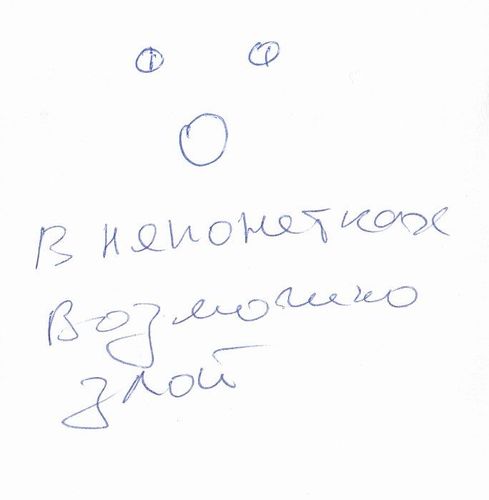 В непонетках
Возможно
злой